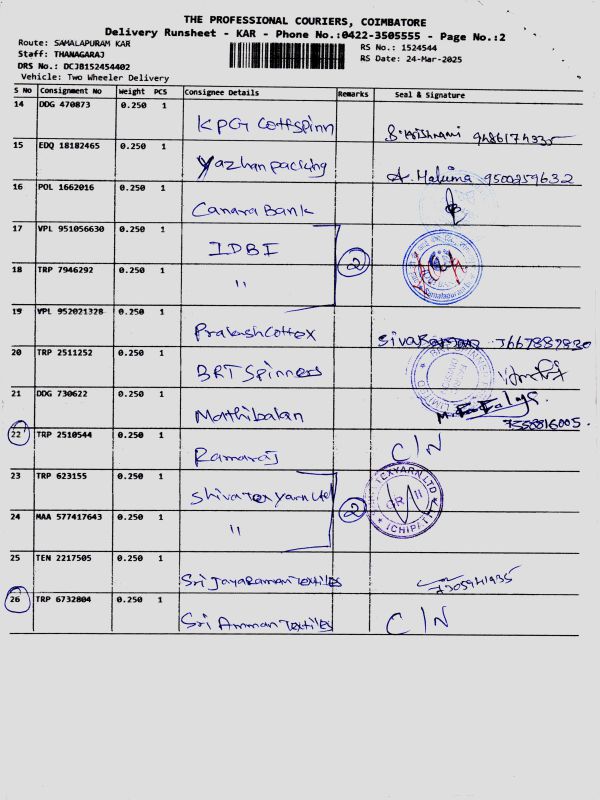 THE PROFESSIONAL COURIERS, COIMBATORE
Delivery Runsheet - KAR - Phone No.:0422-3505555 - Page No.:2
Route: SAMALAPURAM KAR
RS No.: 1524544
Staff: THANAGARAJ
RS Date: 24-Mar-2025
DRS No.: DCJ8152454402
Vehicle: Two Wheeler Delivery
S No Consignment No Weight PCS Consignee Details Remarks Seal & Signature
14 DDG 470873 0.250 1 KPG Cottspinn
15 EDQ 18182465 0.250 1 Yazhan packing A. Mahima 9500259632
16 POL 1662016 0.250 1 Canara Bank
17 VPL 951056630 0.250 1 IDBI 2
18 TRP 7946292 0.250 1 "
19 VPL 952021328 0.250 1 Prakash Cottex
20 TRP 2511252 0.250 1 BRT Spinners
21 DDG 730622 0.250 1 Mathibalan 7558816005.
22 TRP 2510544 0.250 1 Ramaraj C/N
23 TRP 623155 0.250 1 Shiva Tex yarn Ltd 2 TEXYARN LTD
24 MAA 577417643 0.250 1 "
25 TEN 2217505 0.250 1 Sri Jayaraman Textiles
26 TRP 6732804 0.250 1 Sri Amman Textiles C/N